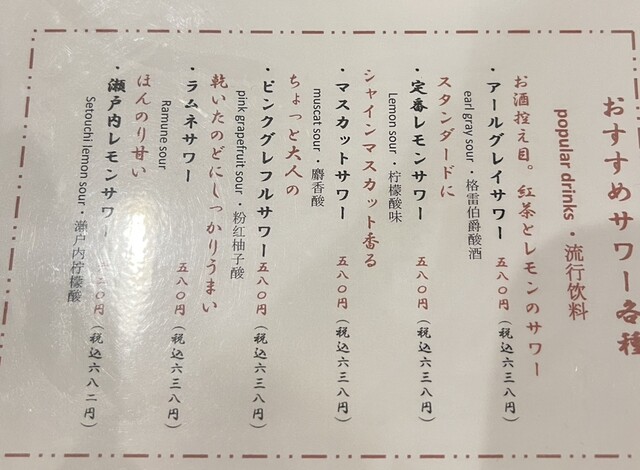 おすすめサワー各種
popular drinks・流行饮料
お酒控え目。紅茶とレモンのサワー
・アールグレイサワー 五八〇円（税込六三八円）
earl gray sour・格雷伯爵酸酒
スタンダードに
・定番レモンサワー 五八〇円（税込六三八円）
Lemon sour・柠檬酸味
シャインマスカット香る
・マスカットサワー 五八〇円（税込六三八円）
muscat sour・麝香酸
ちょっと大人の
・ピンクグレフルサワー 五八〇円（税込六三八円）
pink grapefruit sour・粉红柚子酸
乾いたのどにしっかりうまい
・ラムネサワー 五八〇円（税込六三八円）
Ramune sour
ほんのり甘い
・瀬戸内レモンサワー 〇円（税込六八二円）
Setouchi lemon sour・瀬户内柠檬酸